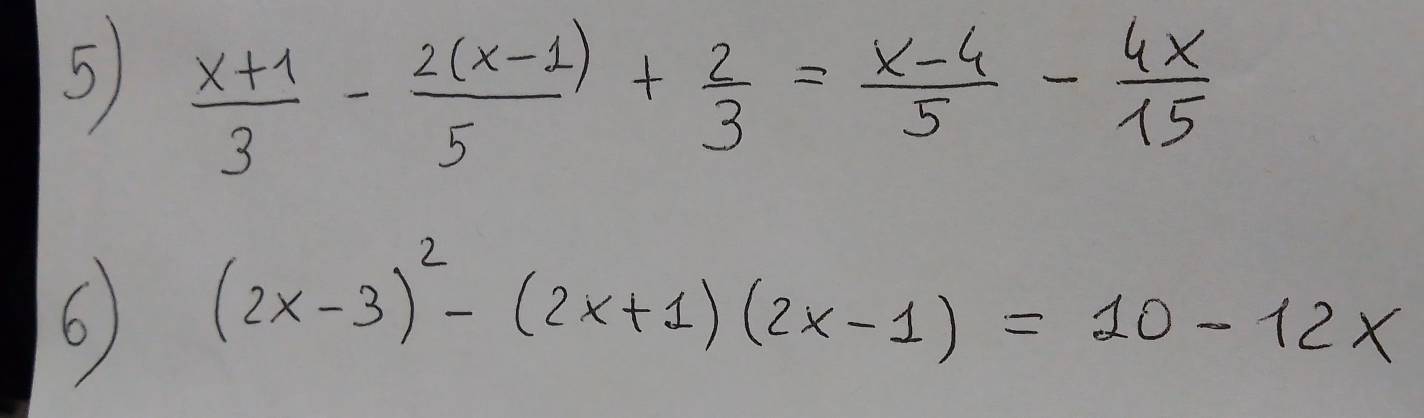 5) \frac{x+1}{3} - \frac{2(x-1)}{5} + \frac{2}{3} = \frac{x-4}{5} - \frac{4x}{15}
6) (2x-3)^2 - (2x+1)(2x-1) = 10-12x